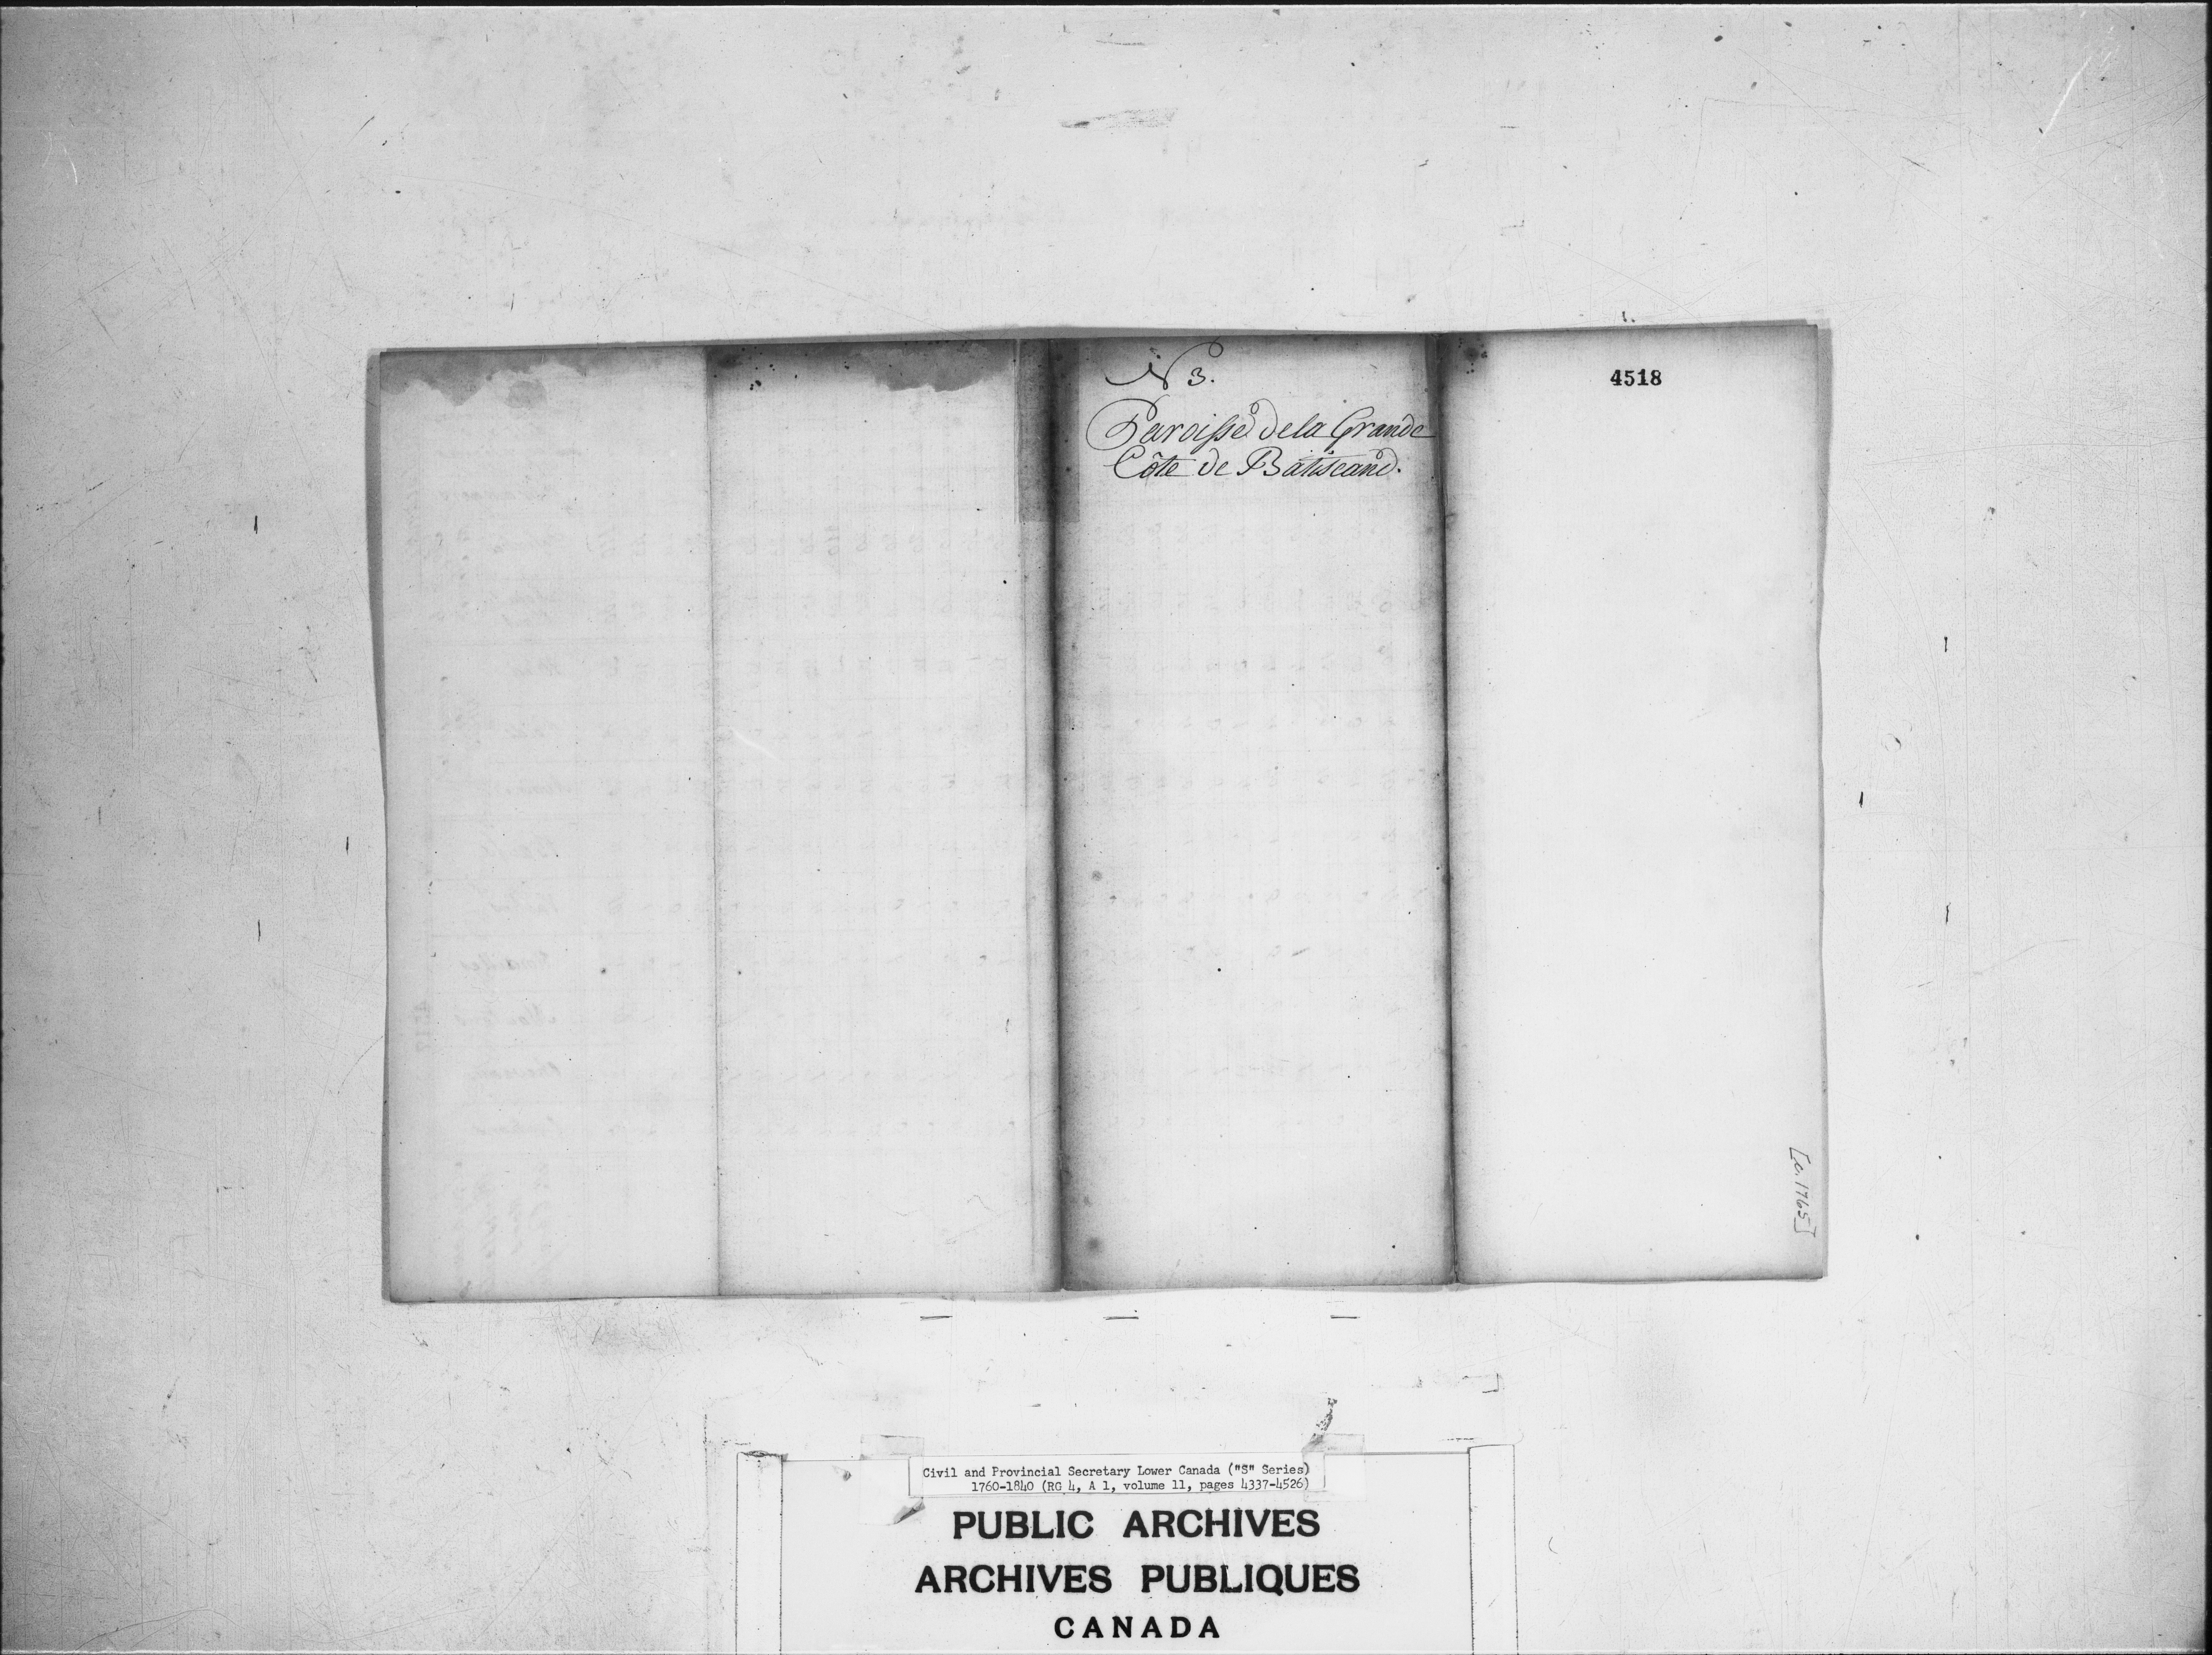 N 3.
Paroisse de la Grande
Côte de Batiscand.
4518
[c. 1765]
Civil and Provincial Secretary Lower Canada ("S" Series)
1760-1840 (RG 4, A 1, volume 11, pages 4337-4526)
PUBLIC ARCHIVES
ARCHIVES PUBLIQUES
CANADA